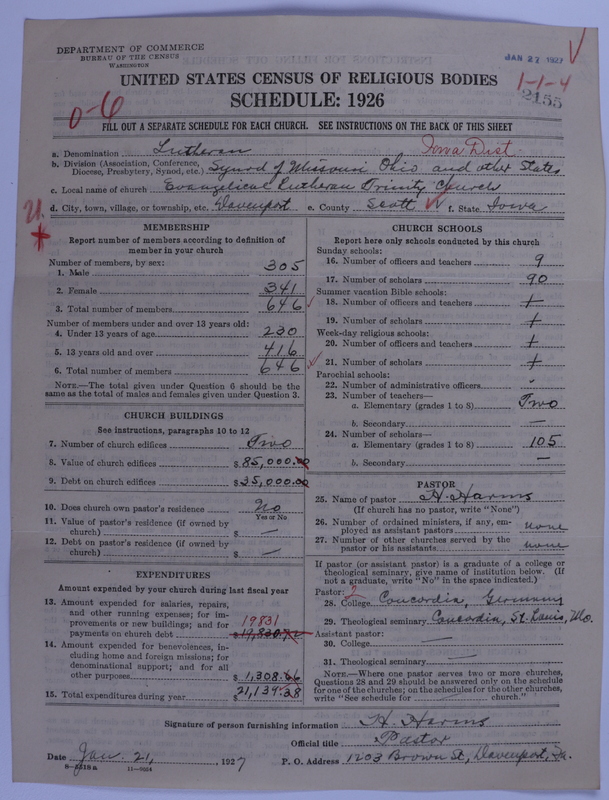 DEPARTMENT OF COMMERCE
BUREAU OF THE CENSUS
WASHINGTON
JAN 22 1927
UNITED STATES CENSUS OF RELIGIOUS BODIES
1-1-4
SCHEDULE: 1926
2155
0-6
FILL OUT A SEPARATE SCHEDULE FOR EACH CHURCH. SEE INSTRUCTIONS ON THE BACK OF THIS SHEET
a. Denomination Lutheran Iowa Dist
b. Division (Association, Conference, Diocese, Presbytery, Synod, etc.) Synod of Missouri Ohio and other States
c. Local name of church Evangelical Lutheran Trinity Church
d. City, town, village, or township, etc. Davenport e. County Scott f. State Iowa
MEMBERSHIP
Report number of members according to definition of
member in your church
Number of members, by sex:
1. Male 305
2. Female 341
3. Total number of members 646
Number of members under and over 13 years old:
4. Under 13 years of age 230
5. 13 years old and over 416
6. Total number of members 646
NOTE.—The total given under Question 6 should be the
same as the total of males and females given under Question 3.
CHURCH BUILDINGS
See instructions, paragraphs 10 to 12
7. Number of church edifices Two
8. Value of church edifices $85,000.00
9. Debt on church edifices $25,000.00
10. Does church own pastor's residence No
Yes or No
11. Value of pastor's residence (if owned by
church) $ —
12. Debt on pastor's residence (if owned by
church) $ —
EXPENDITURES
Amount expended by your church during last fiscal year
13. Amount expended for salaries, repairs,
and other running expenses; for im-
provements or new buildings; and for 19831
payments on church debt
14. Amount expended for benevolences, in-
cluding home and foreign missions; for
denominational support; and for all
other purposes $1,308.66
15. Total expenditures during year $21,139.38
CHURCH SCHOOLS
Report here only schools conducted by this church
Sunday schools:
16. Number of officers and teachers 9
17. Number of scholars 90
Summer vacation Bible schools:
18. Number of officers and teachers +
19. Number of scholars +
Week-day religious schools:
20. Number of officers and teachers +
21. Number of scholars +
Parochial schools:
22. Number of administrative officers -
23. Number of teachers—
a. Elementary (grades 1 to 8) Two
b. Secondary —
24. Number of scholars—
a. Elementary (grades 1 to 8) 105
b. Secondary —
PASTOR
25. Name of pastor H. Harms
(If church has no pastor, write "None")
26. Number of ordained ministers, if any, em-
ployed as assistant pastors none
27. Number of other churches served by the
pastor or his assistants none
If pastor (or assistant pastor) is a graduate of a college or
theological seminary, give name of institution below. (If
not a graduate, write "No" in the space indicated.)
Pastor: 2
28. College Concordia, Germany
29. Theological seminary Concordia, St. Louis, Mo.
Assistant pastor:
30. College —
31. Theological seminary —
NOTE.—Where one pastor serves two or more churches,
Questions 28 and 29 should be answered only on the schedule
for one of the churches; on the schedules for the other churches,
write "See schedule for church."
Signature of person furnishing information H. Harms
Official title Pastor
Date Jan. 21, 1927 P. O. Address 1203 Brown St, Davenport, Ia.
8-5518a 11-9024